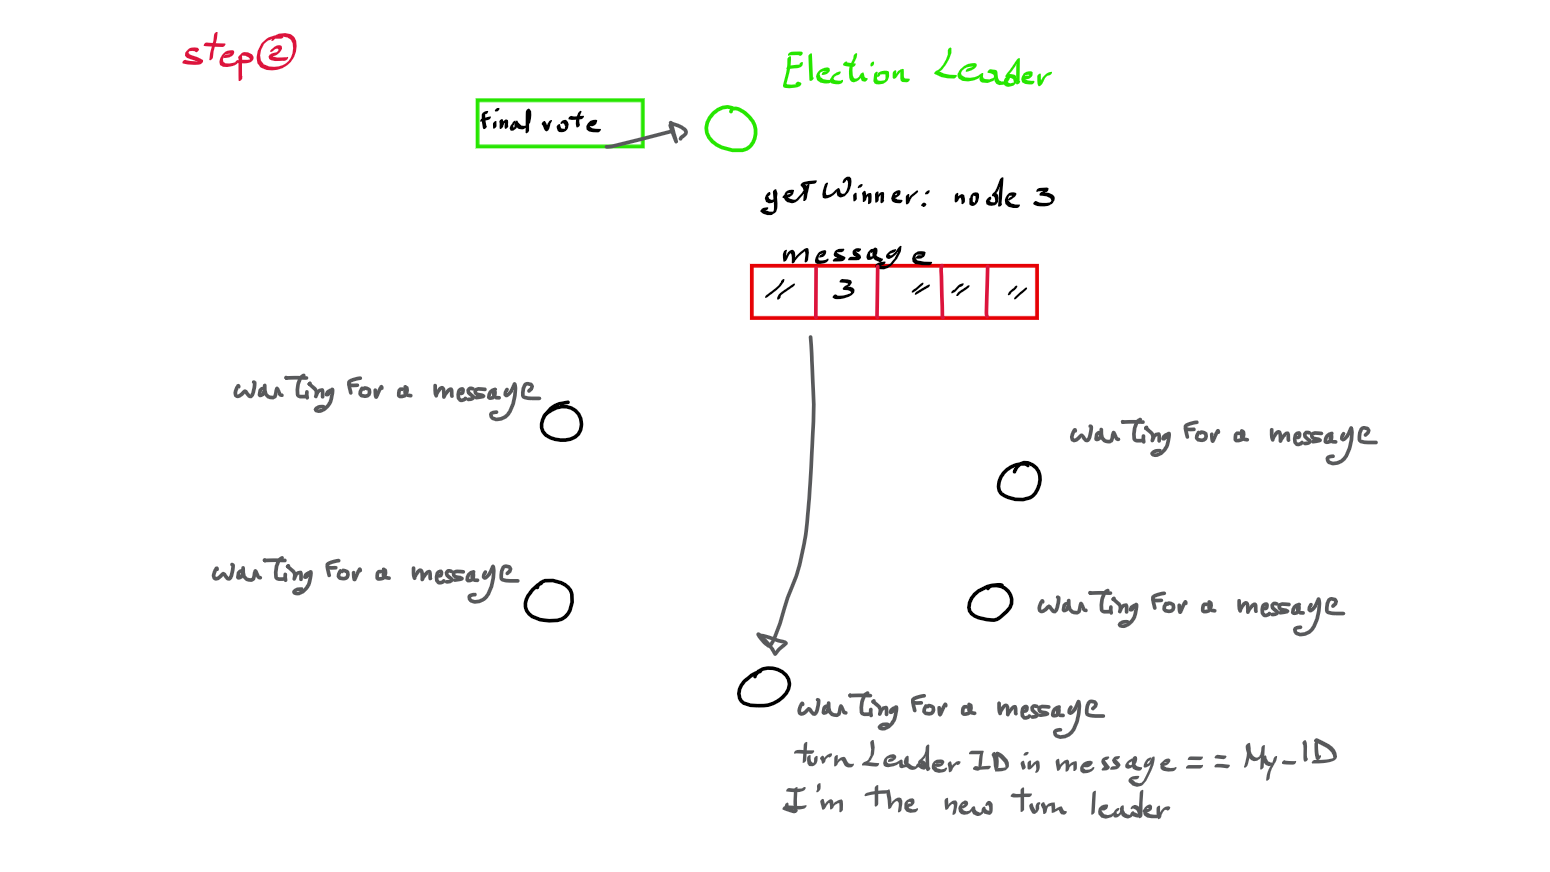 step ②
Election Leader
final vote
getWinner: node 3
message
〃 3 〃 〃 〃
waiting for a message
waiting for a message
waiting for a message
waiting for a message
waiting for a message
turn Leader ID in message == My_ID
I'm the new turn leader